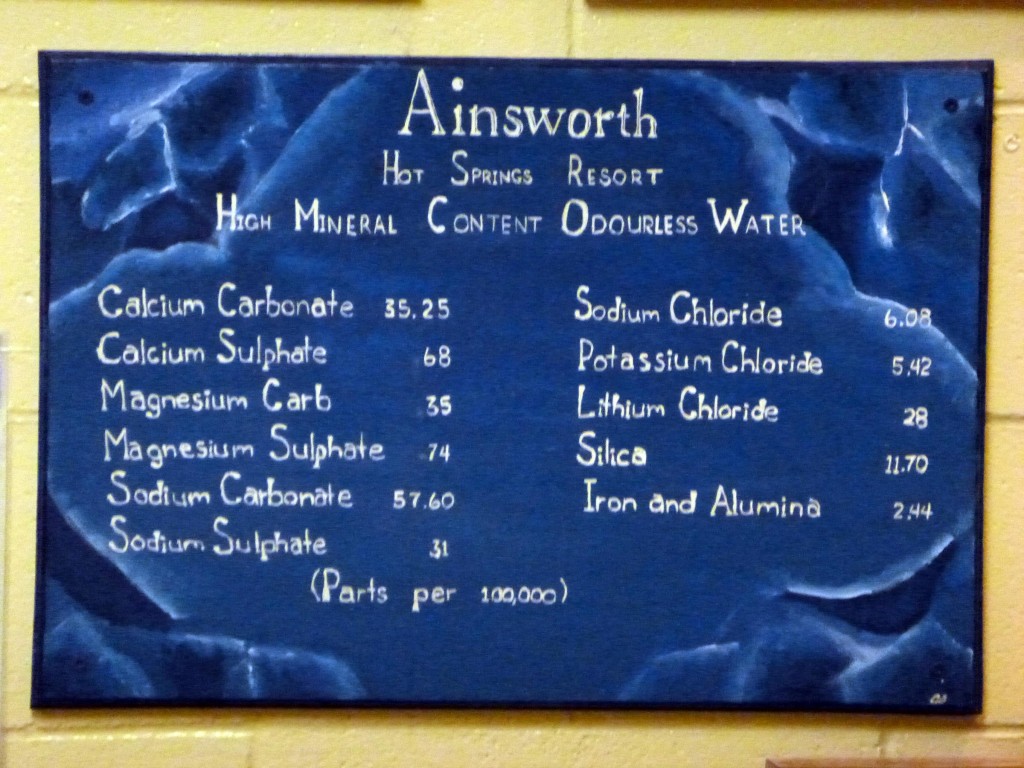 Ainsworth
Hot Springs Resort
High Mineral Content Odourless Water
Calcium Carbonate 35.25
Calcium Sulphate 68
Magnesium Carb 35
Magnesium Sulphate 74
Sodium Carbonate 57.60
Sodium Sulphate 31
Sodium Chloride 6.08
Potassium Chloride 5.42
Lithium Chloride 28
Silica 11.70
Iron and Alumina 2.44
(Parts per 100,000)